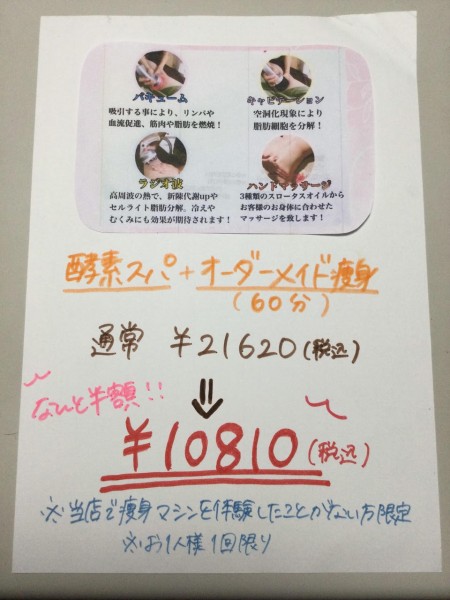 バキューム
吸引する事により、リンパや
血流促進、筋肉や脂肪を燃焼!
キャビテーション
空洞化現象により
脂肪細胞を分解!
ラジオ波
高周波の熱で、新陳代謝upや
セルライト脂肪分解。冷えや
むくみにも効果が期待されます!
ハンドマッサージ
3種類のスロータスオイルから
お客様のお身体に合わせた
マッサージを致します!
酵素スパ+オーダーメイド痩身
(60分)
通常 ¥21620(税込)
なんと半額!!
¥10810(税込)
※当店で痩身マシンを体験したことがない方限定
※お1人様1回限り